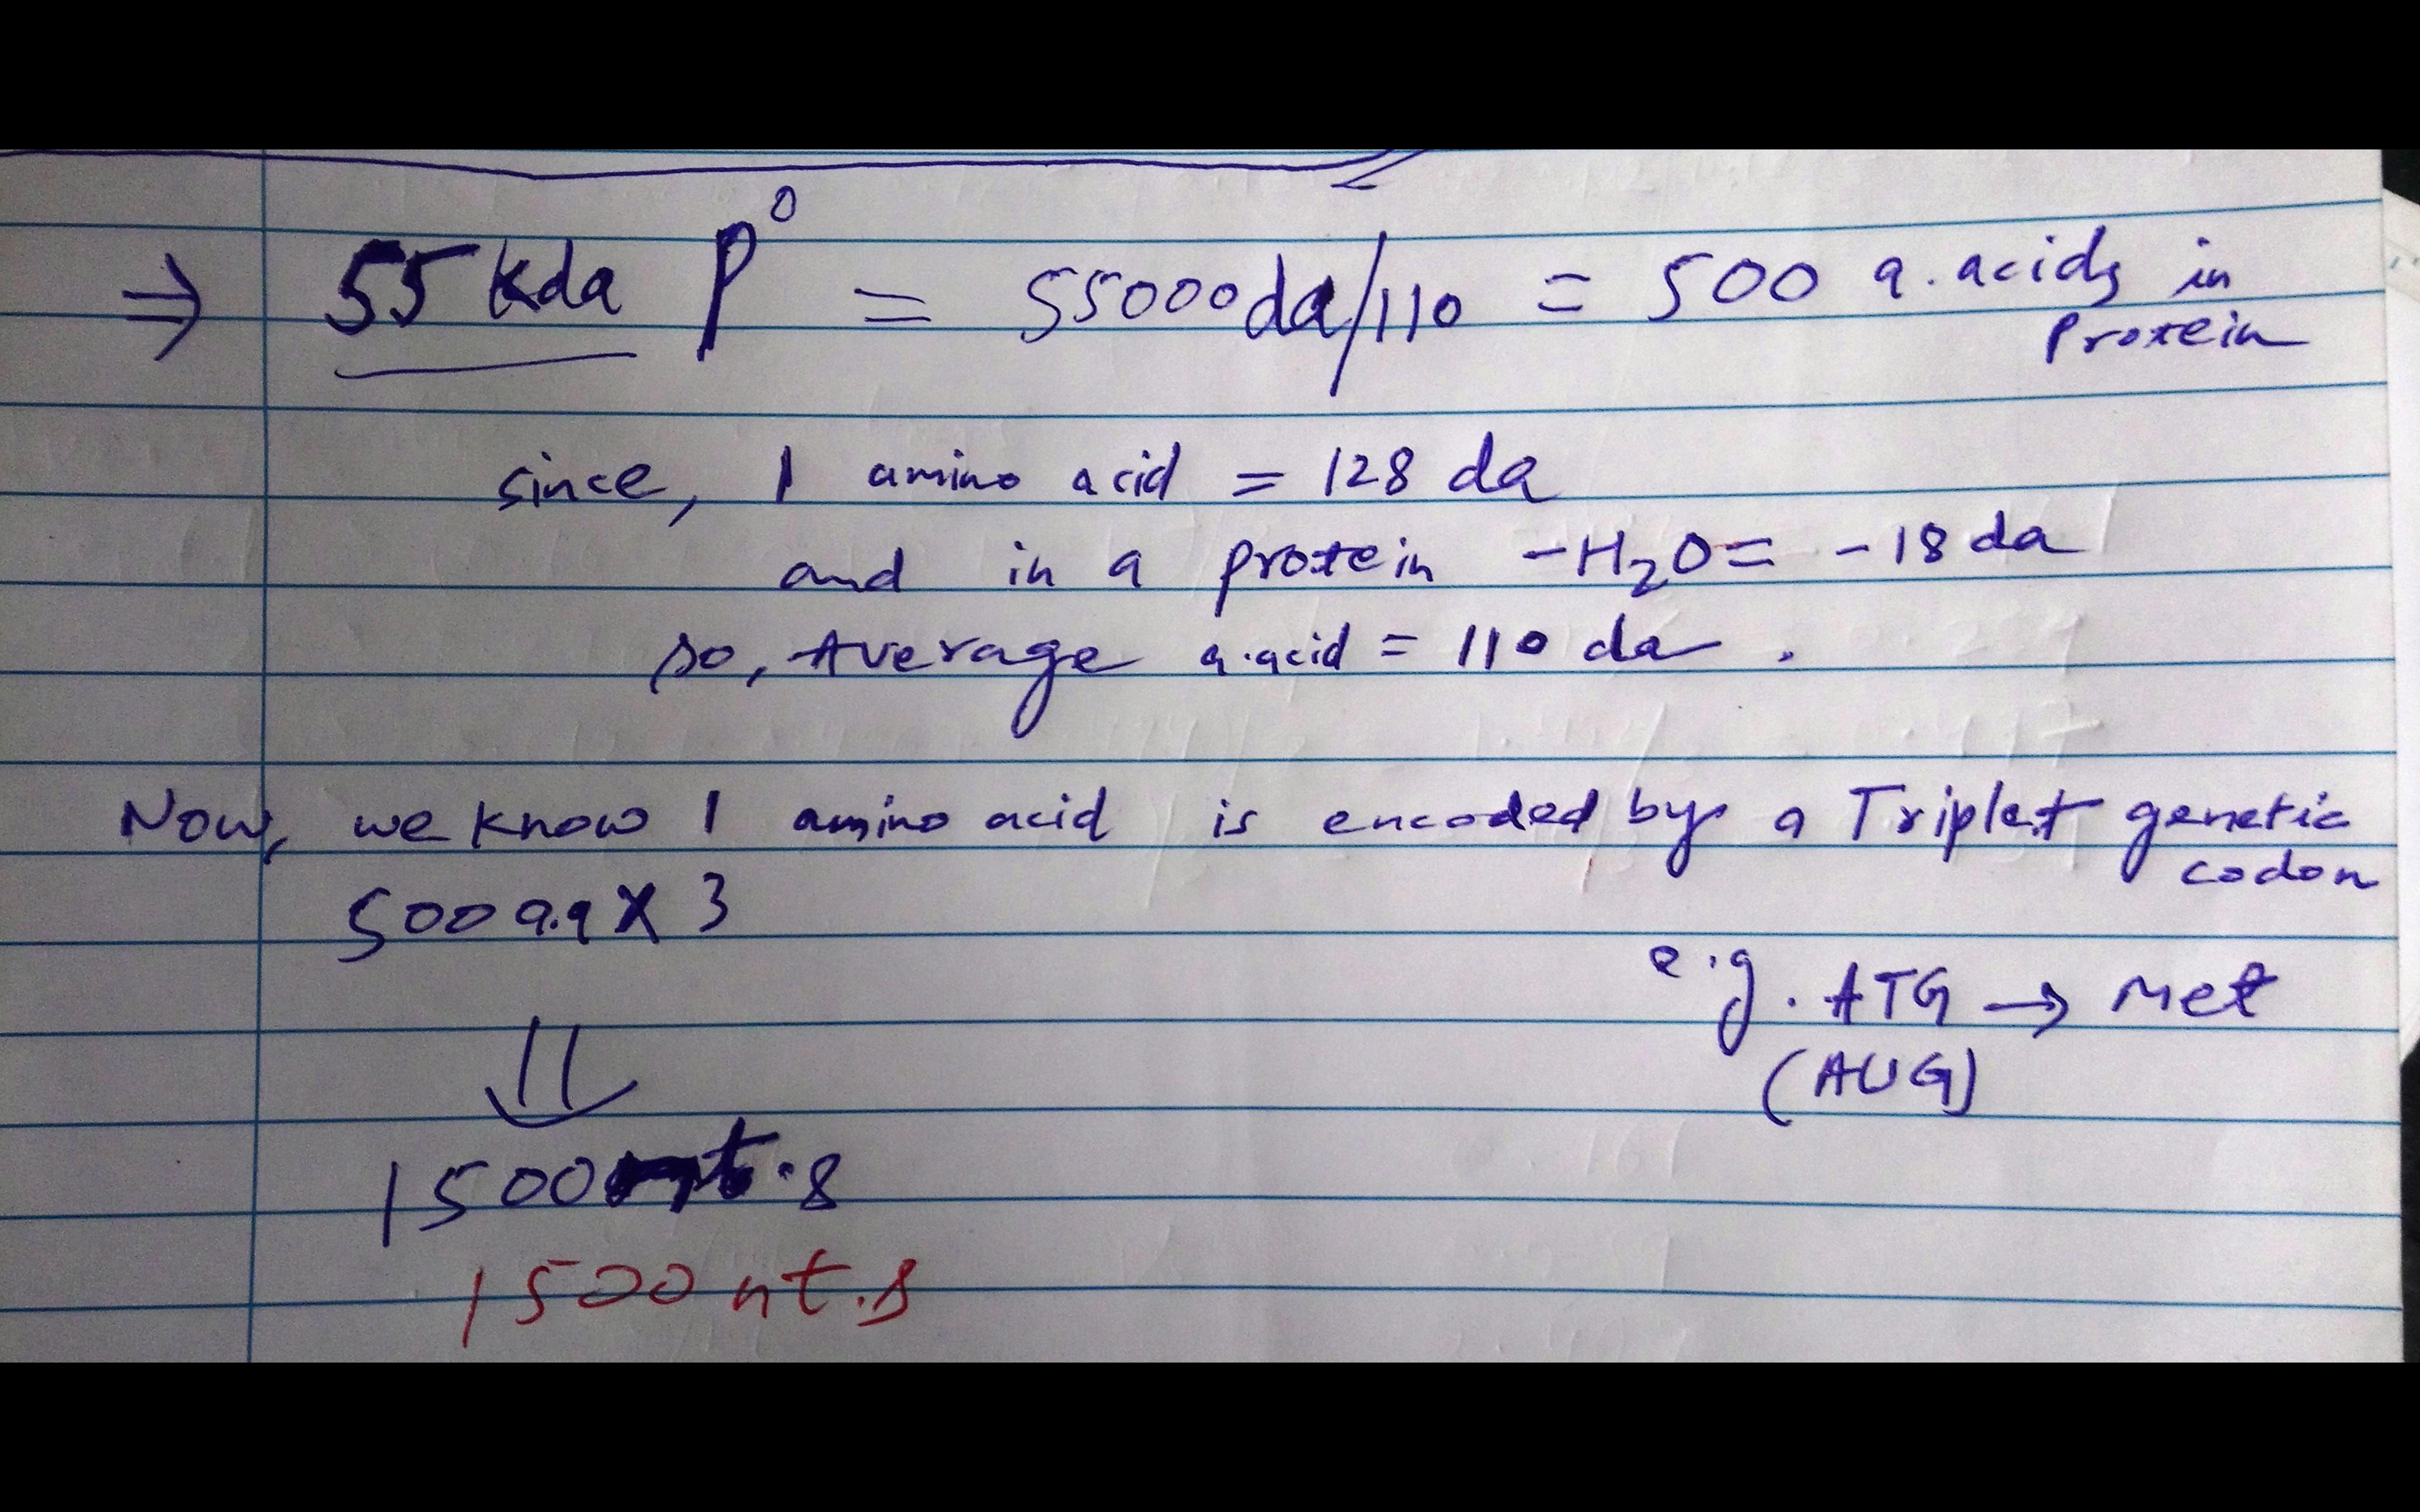 ⇒ 55 kda P⁰ = 55000da/110 = 500 a.acids in
protein
since, 1 amino acid = 128 da
and in a protein -H₂O = -18 da
so, Average a.acid = 110 da .
Now, we know 1 amino acid is encoded by a Triplet genetic
codon
500 a.a X 3
e.g. ATG → Met
(AUG)
⇓
1500 nt.s
1500 nt.s